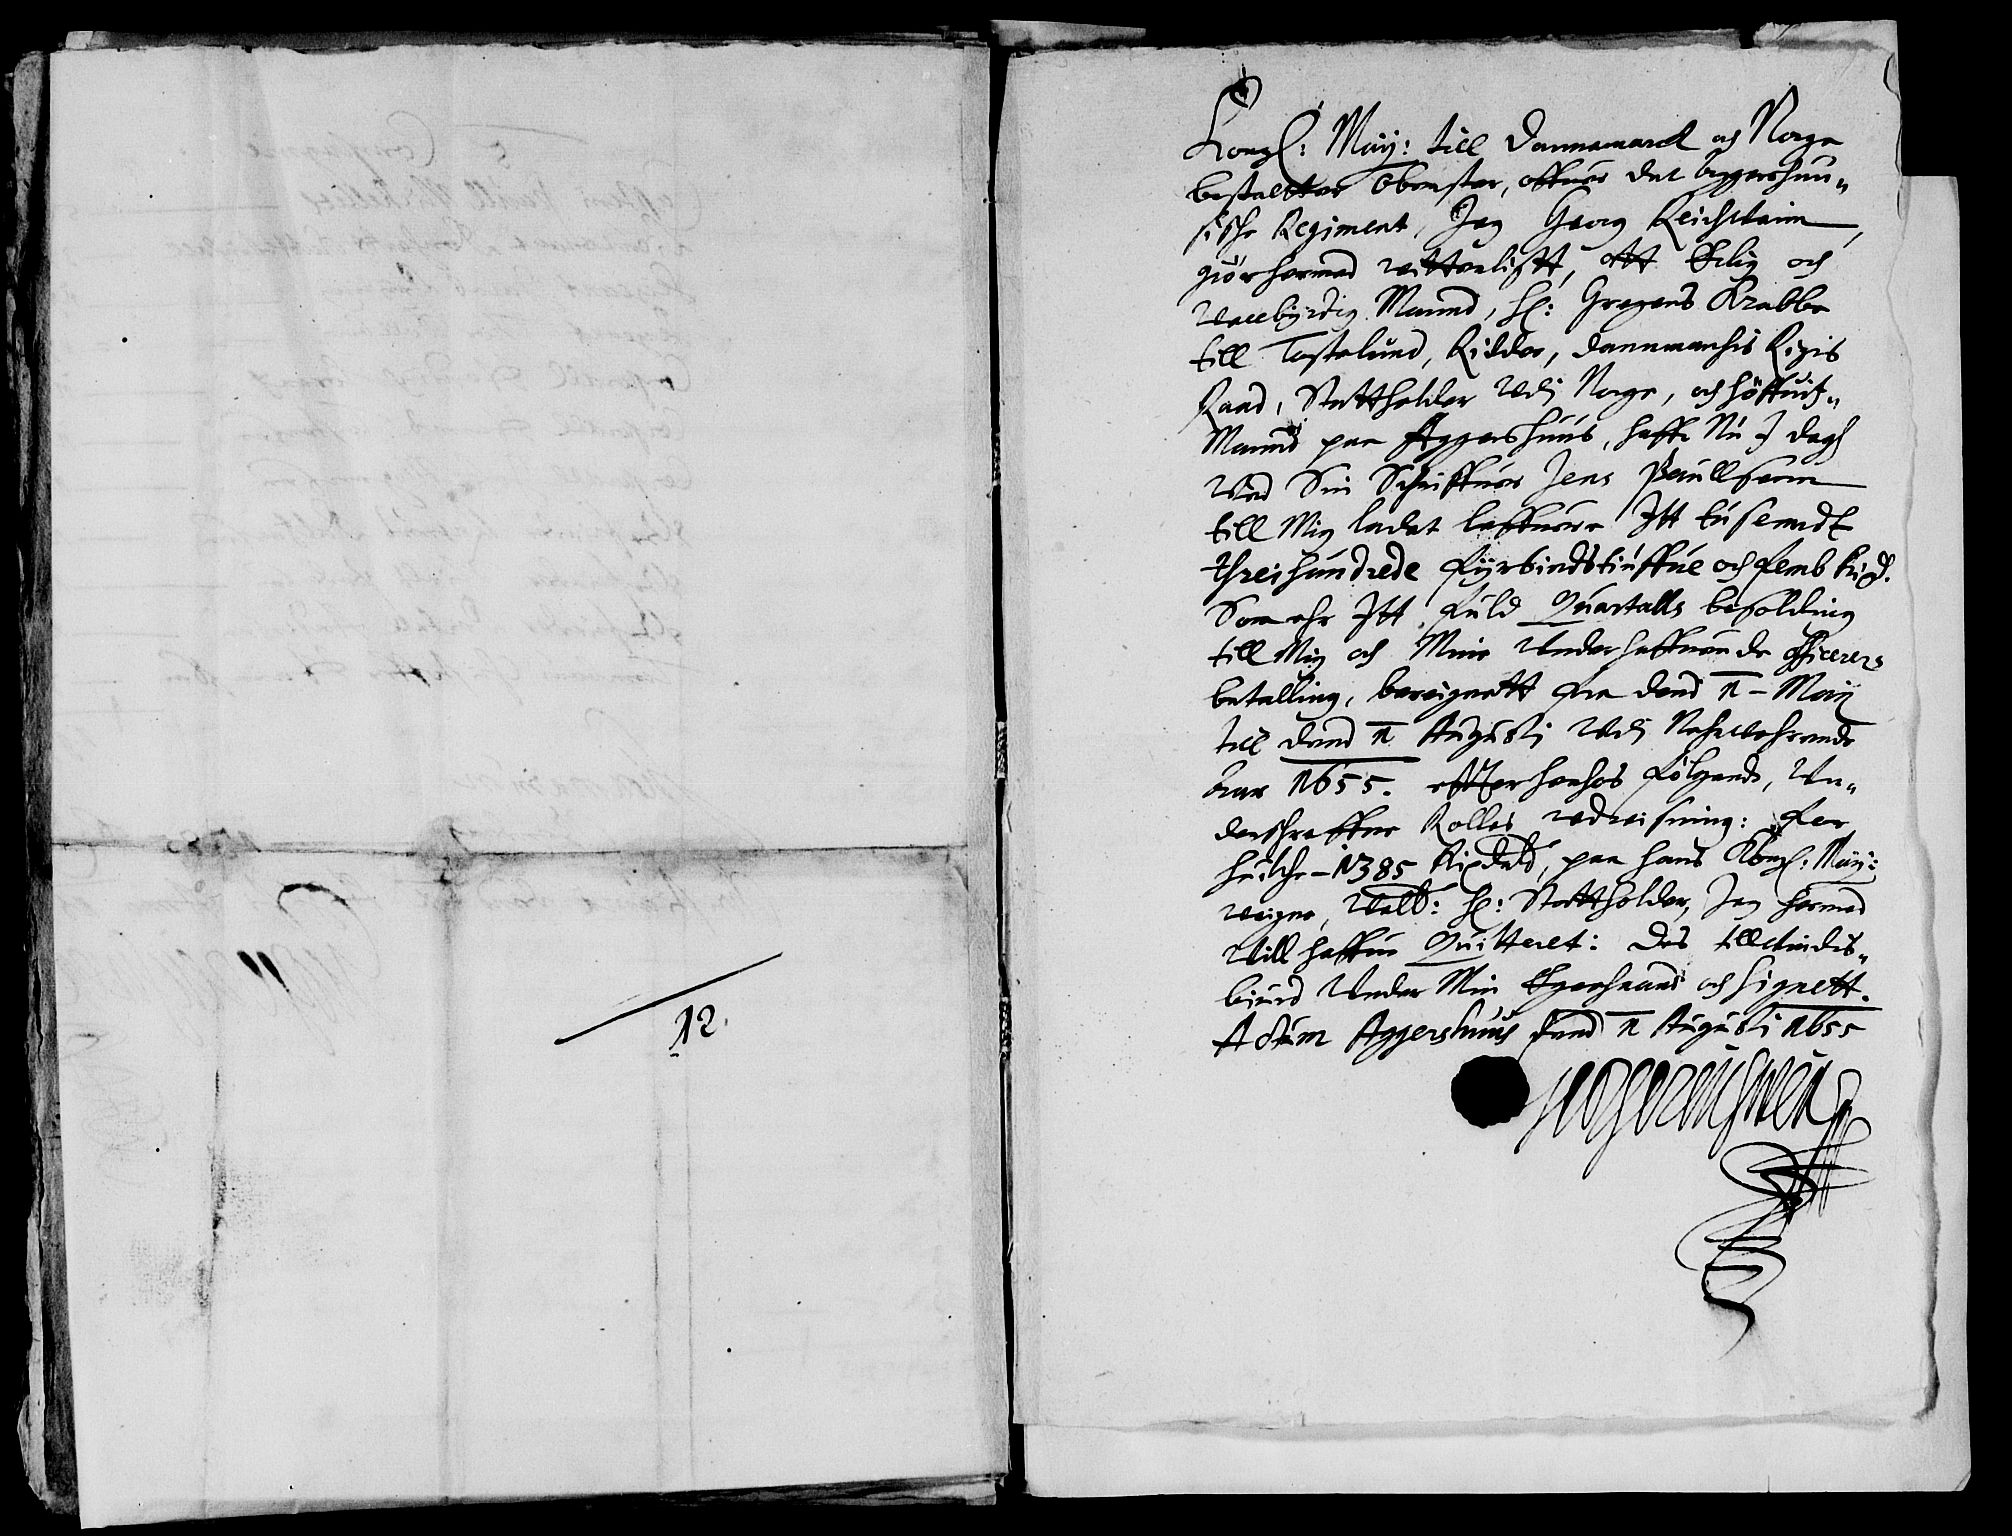 12.
Kongl: Maÿ: till Dannemarck och Norge
bestalter Obrester, offuer det Aggershuu-
sische Regiment, Jeg Georg Reichwein,
giør hermed vitterligtt, att Erlig och
Welbÿrdig Mannd, Hr: Gregers Krabbe
till Tostelund, Ridder, Dannmarchis Rigis
Raad, Stattholder Udj Norge, och Höffuitz-
Mannd paa Aggershuus, haffr Nu J dagh
Ved Sin Schriffuer Jens Paullsenn
till Mig ladet leffuere Itt tusenndt
threihundrede fÿrsindstiuffue och femb Rixd.
Som ehr Itt fuld Quartalls besolding
till Mig och Mine Underhaffuende officerers
betalling, bereignett fra dend 11 Maÿ
till dend 11 Augusti Udj Nehrwehrende
Aar 1655. effter herhos følgende, Un-
derschreffne Rolles Udvisning: For
huilche 1385 Rixdald, paa hans Kongl: Maÿ:
veigne, Welb: Hr: Stattholder, Jeg hermed
Vill haffue Quitteret: Des till Vindis-
biurd Under Min Egenhaand och Signett.
Actum Aggershuus dend 11 Augusti 1655
Jørgen Reichwein